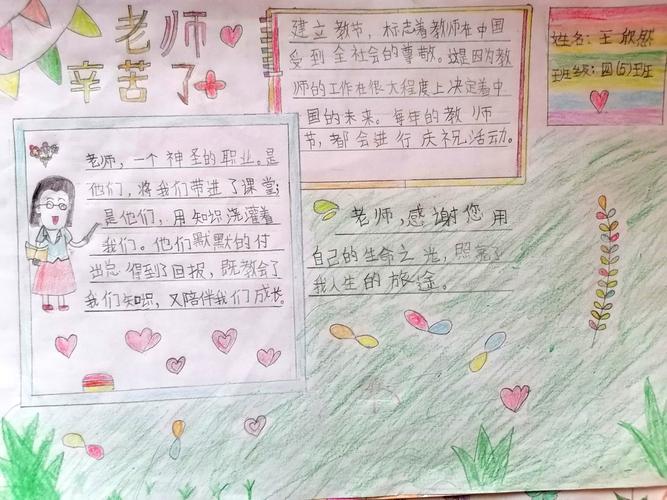 老师
辛苦了
建立教节，标志着教师在中国
受到全社会的尊敬。这是因为教
师的工作在很大程度上决定着中
国的未来。每年的教师
节，都会进行庆祝活动。
姓名：王欣然
班级：四(5)班
老师，一个神圣的职业。是
他们，将我们带进了课堂；
是他们，用知识浇灌着
我们。他们默默的付
出总得到了回报，既教会了
我们知识，又陪伴我们成长。
老师，感谢您用
自己的生命之光，照亮了
我人生的旅途。